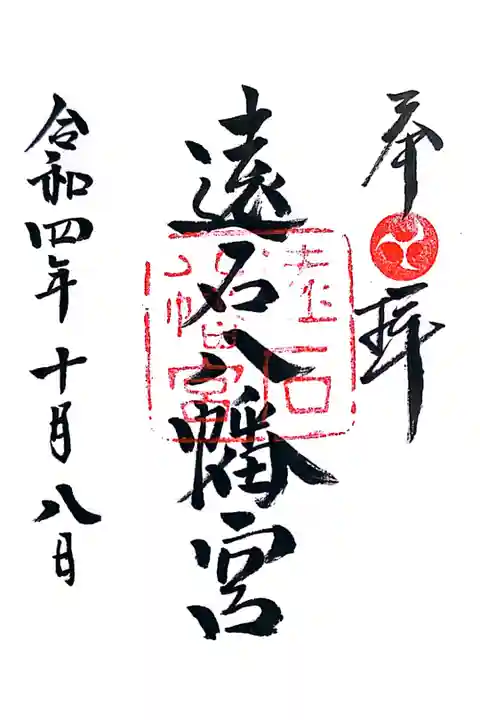 奉拝
遠石八幡宮
遠石八幡宮
令和四年十月八日